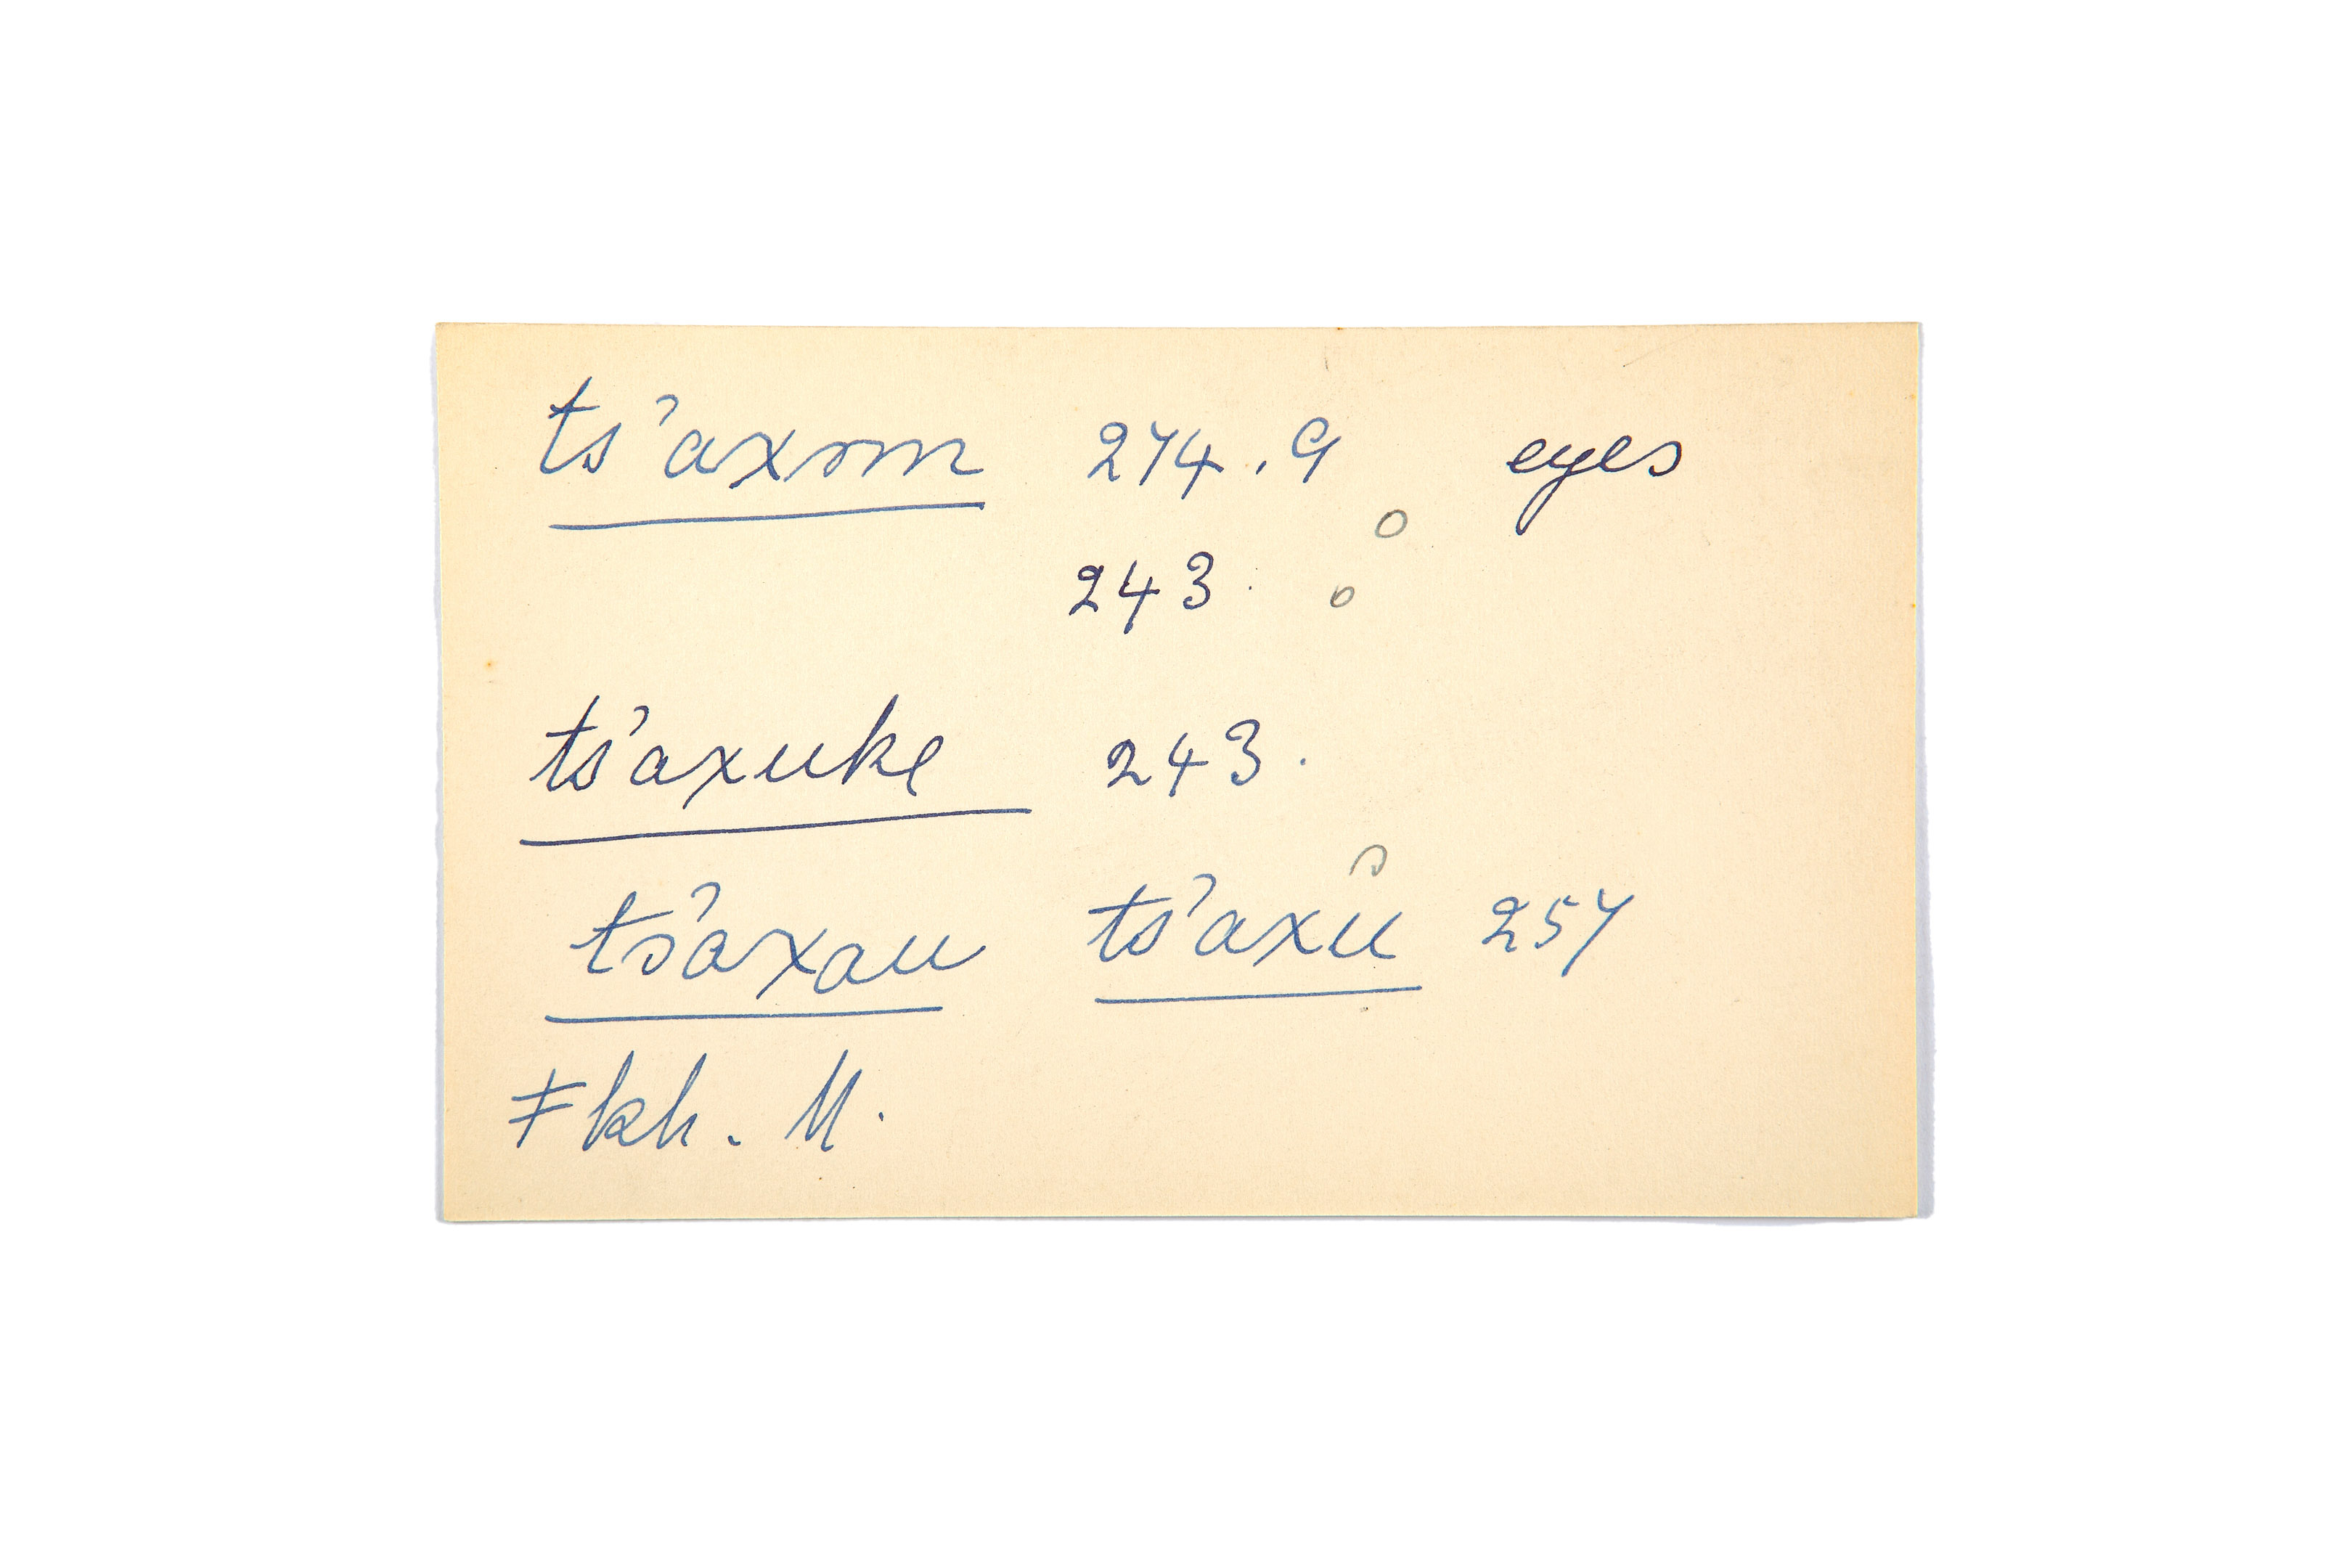 ts'axom 274.9 eyes
243.
ts'axuke 243.
ts'axau ts'axu 257
ǂkh. M.